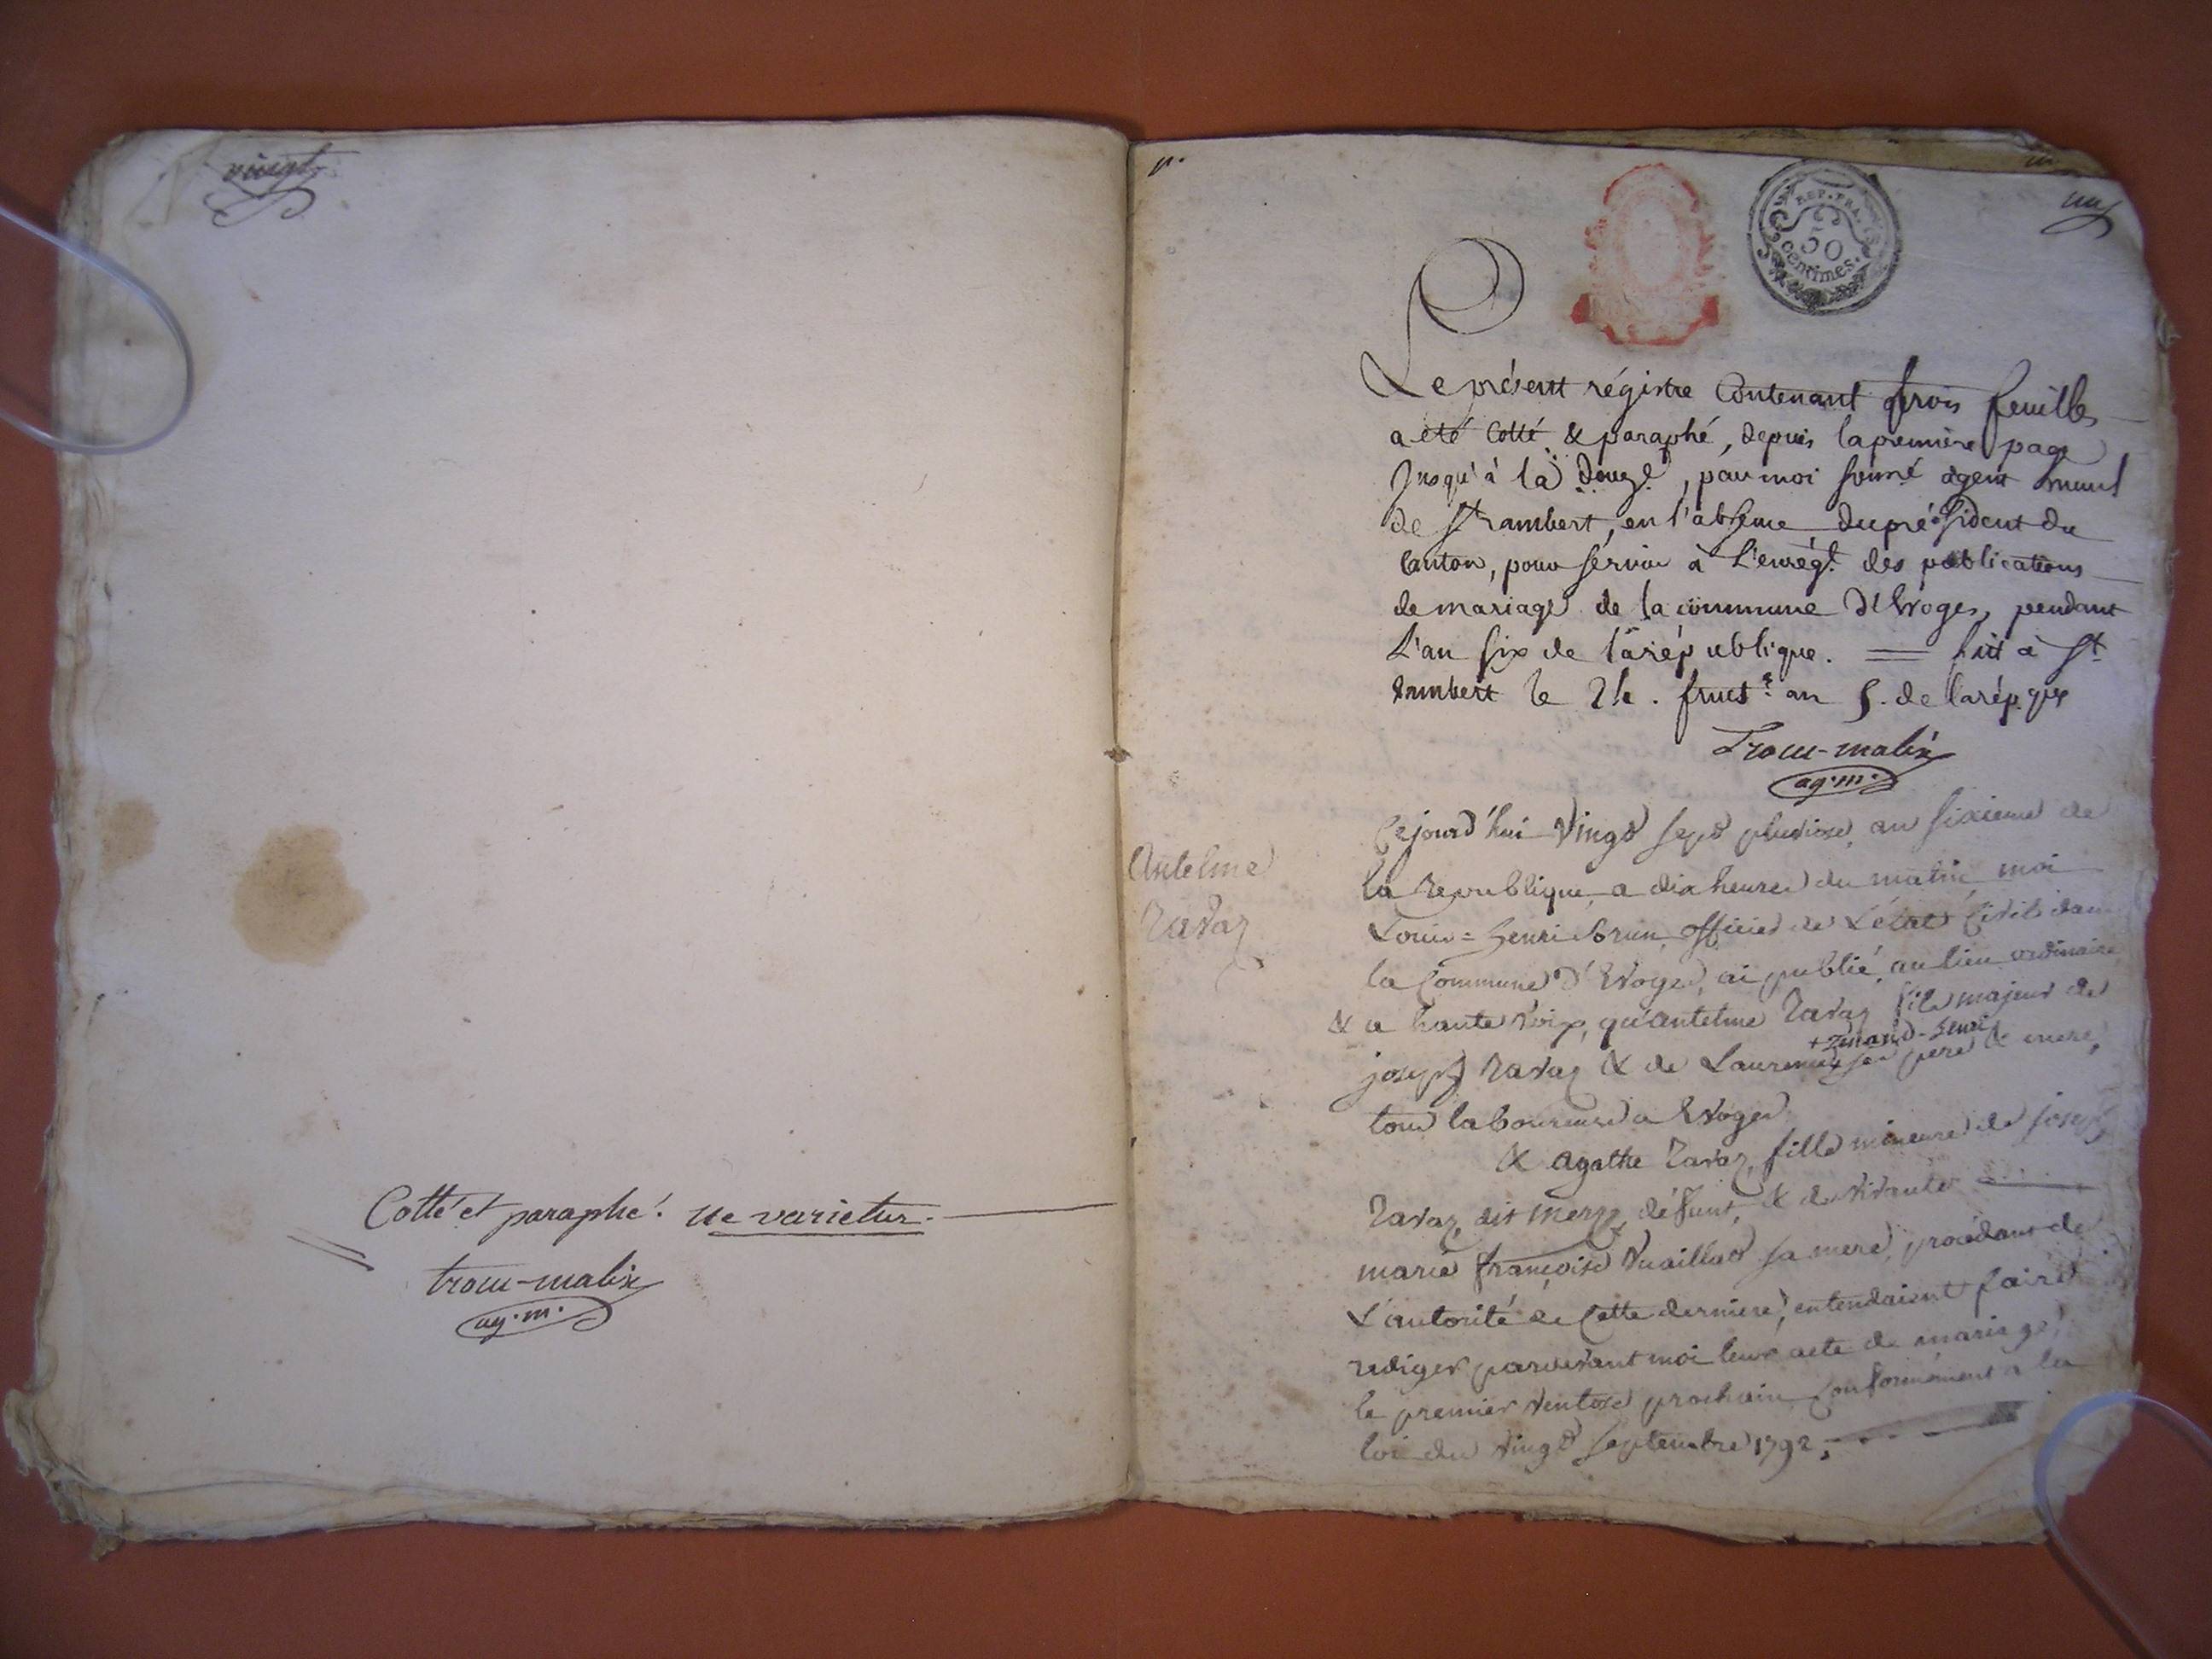 vingt
Cotté et paraphé. ne varietur.
trocu-malix
ag.m.
REP. FRA.
50
centimes.
un
Le présent régistre Contenant trois feuilles
a été Cotté & paraphé, depuis la première page
Jusqu'à la douze, par moi soussé agent muni
de St rambert, en l'absence du président du
Canton, pour servir à L'enregt. des publications
de mariage de la commune d'Evoges, pendant
L'an six de la république. = fait à St
rambert le 24. fruct. an 5. de la rép. que
Trocu-malix
ag.m.
Antelme
Ravaz
Cejourd'hui vingt sept pluviose, an sixieme de
la republique, a dix heures du matin, moi
Louis=henri brun, officier de L'état Civil dans
la Commune d'Evoges, ai publié, au lieu ordinaire
& a haute voix, qu'antelme Ravaz fils majeur de
joseph Ravaz & de Laurence son pere & mere,
tous laboureurs a Evoges
& agathe Ravaz, fille mineure de joseph
Ravaz, dit merge, défunt, & de vivante
marie françoise Vuaillat sa mere, procedant de
L'autorité de Cette derniere, entendaient faire
rediger pardevant moi leur acte de mariage,
le premier ventose prochain, Conformément a la
loi du vingt septembre 1792,